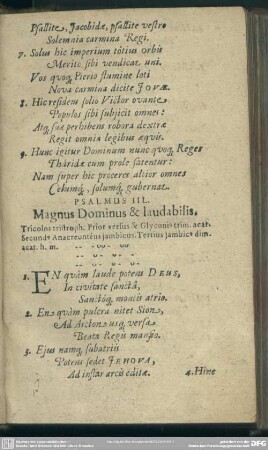 Psallite, Jacobidæ, psallite vestro
Solemnia carmina Regi.
7. Solus hic imperium totius orbis
Merito sibi vendicat uni.
Vos quoq; Pierio flumine loti
Nova carmina dicite JOVÆ.
8. Hic residens solio Victor ovante
Populos sibi subjicit omnes:
Atq; suæ perhibens robora dextræ
Regit omnia legibus æquis.
9. Hunc igitur Dominum nunc quoq; Reges
Tharidæ cum prole fatentur:
Nam super hic proceres altior omnes
Cœlumq;, solumq; gubernat.
PSALMUS III.
Magnus Dominus & laudabilis,
Tricolos tristroph. Prior versus è Glyconio trim. acat.
Secundus Anacreontêus jambicus. Tertius jambic9 dim.
acat. h. m.
1. EN quàm laude potens DEUS,
In civitate sanctâ,
Sanctóq; montis atrio.
2. En quàm pulcra nitet Sion,
Ad Arcton usq; versa
Beata Regis mansio.
3. Ejus namq; sub atriis
Potens sedet JEHOVA,
Ad instar arcis editæ.
4. Hinc